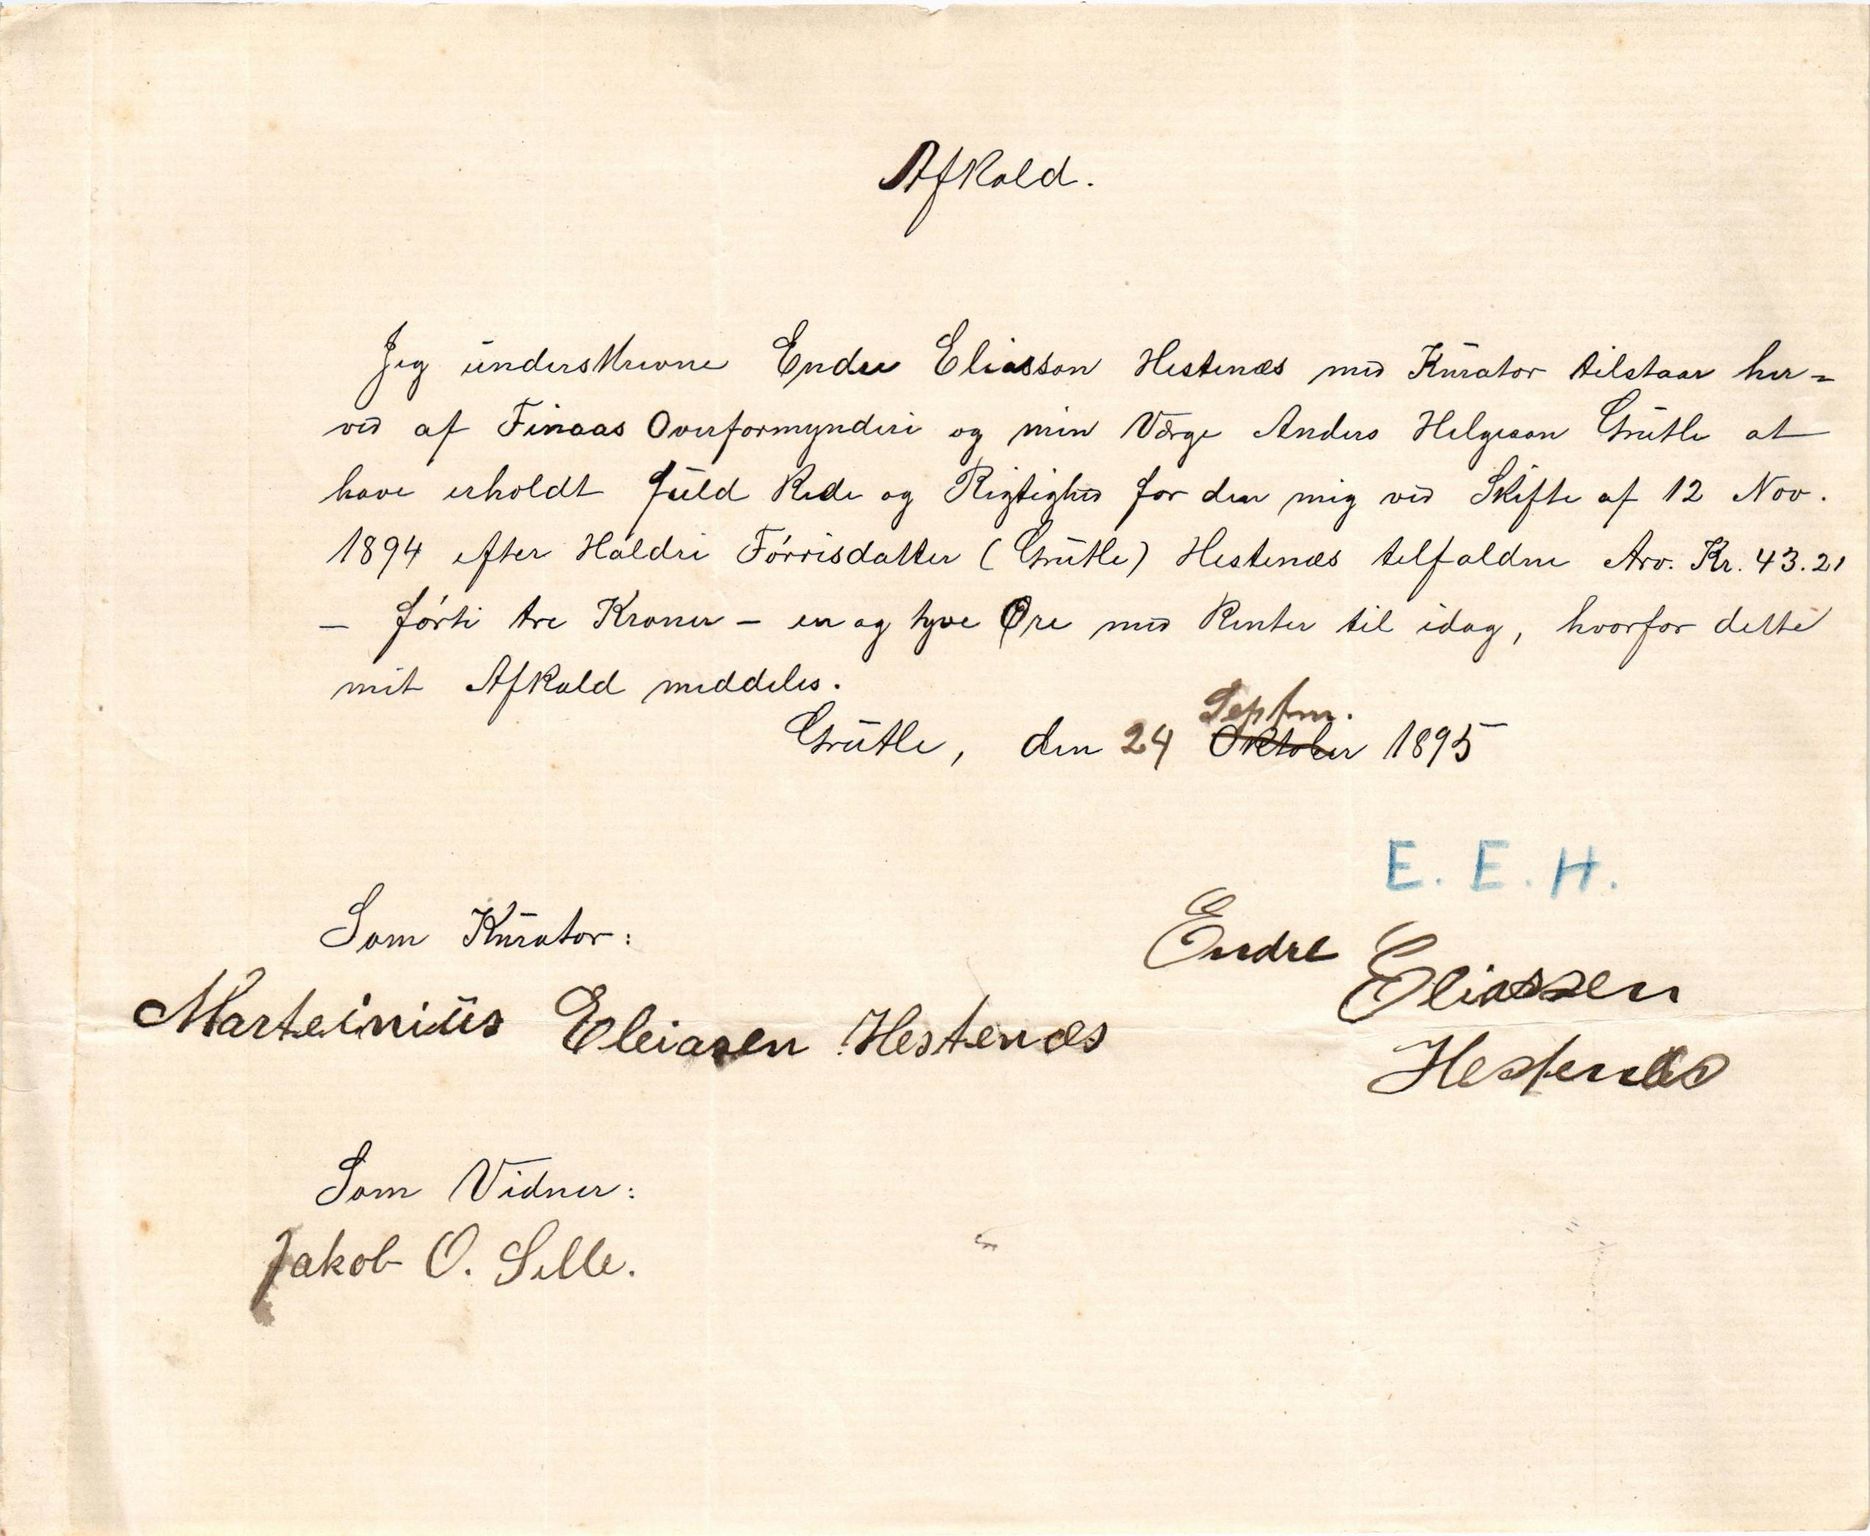 Afkald.
Jeg underskrevne Endre Eliasson Hestenæs med Kurator tilstaar her=
ved af Finaas Overformynderi og min Værge Anders Helgeson Grutle at
have erholdt fuld Rede og Rigtighed for den mig ved Skifte af 12 Nov.
1894 efter Haldri Tórrisdatter (Grutle) Hestenæs tilfaldne Arv. Kr. 43.21
— förti tre Kroner — en og tyve Øre med Renter til idag, hvorfor dette
mit Afkald meddeles.
Septm.
Grutle, den 24 Oktober 1895
E. E. H.
Som Kurator:
Endre Eliassen
Marteinius Eleiasen Hestenæs
Hestenæs
Som Vidner:
Jakob O. Selle.